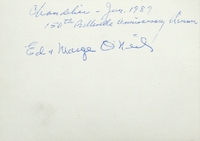 Chandelier - Jan. 1989
150th Anniversary Dinner
Ed & Marge O'Neil